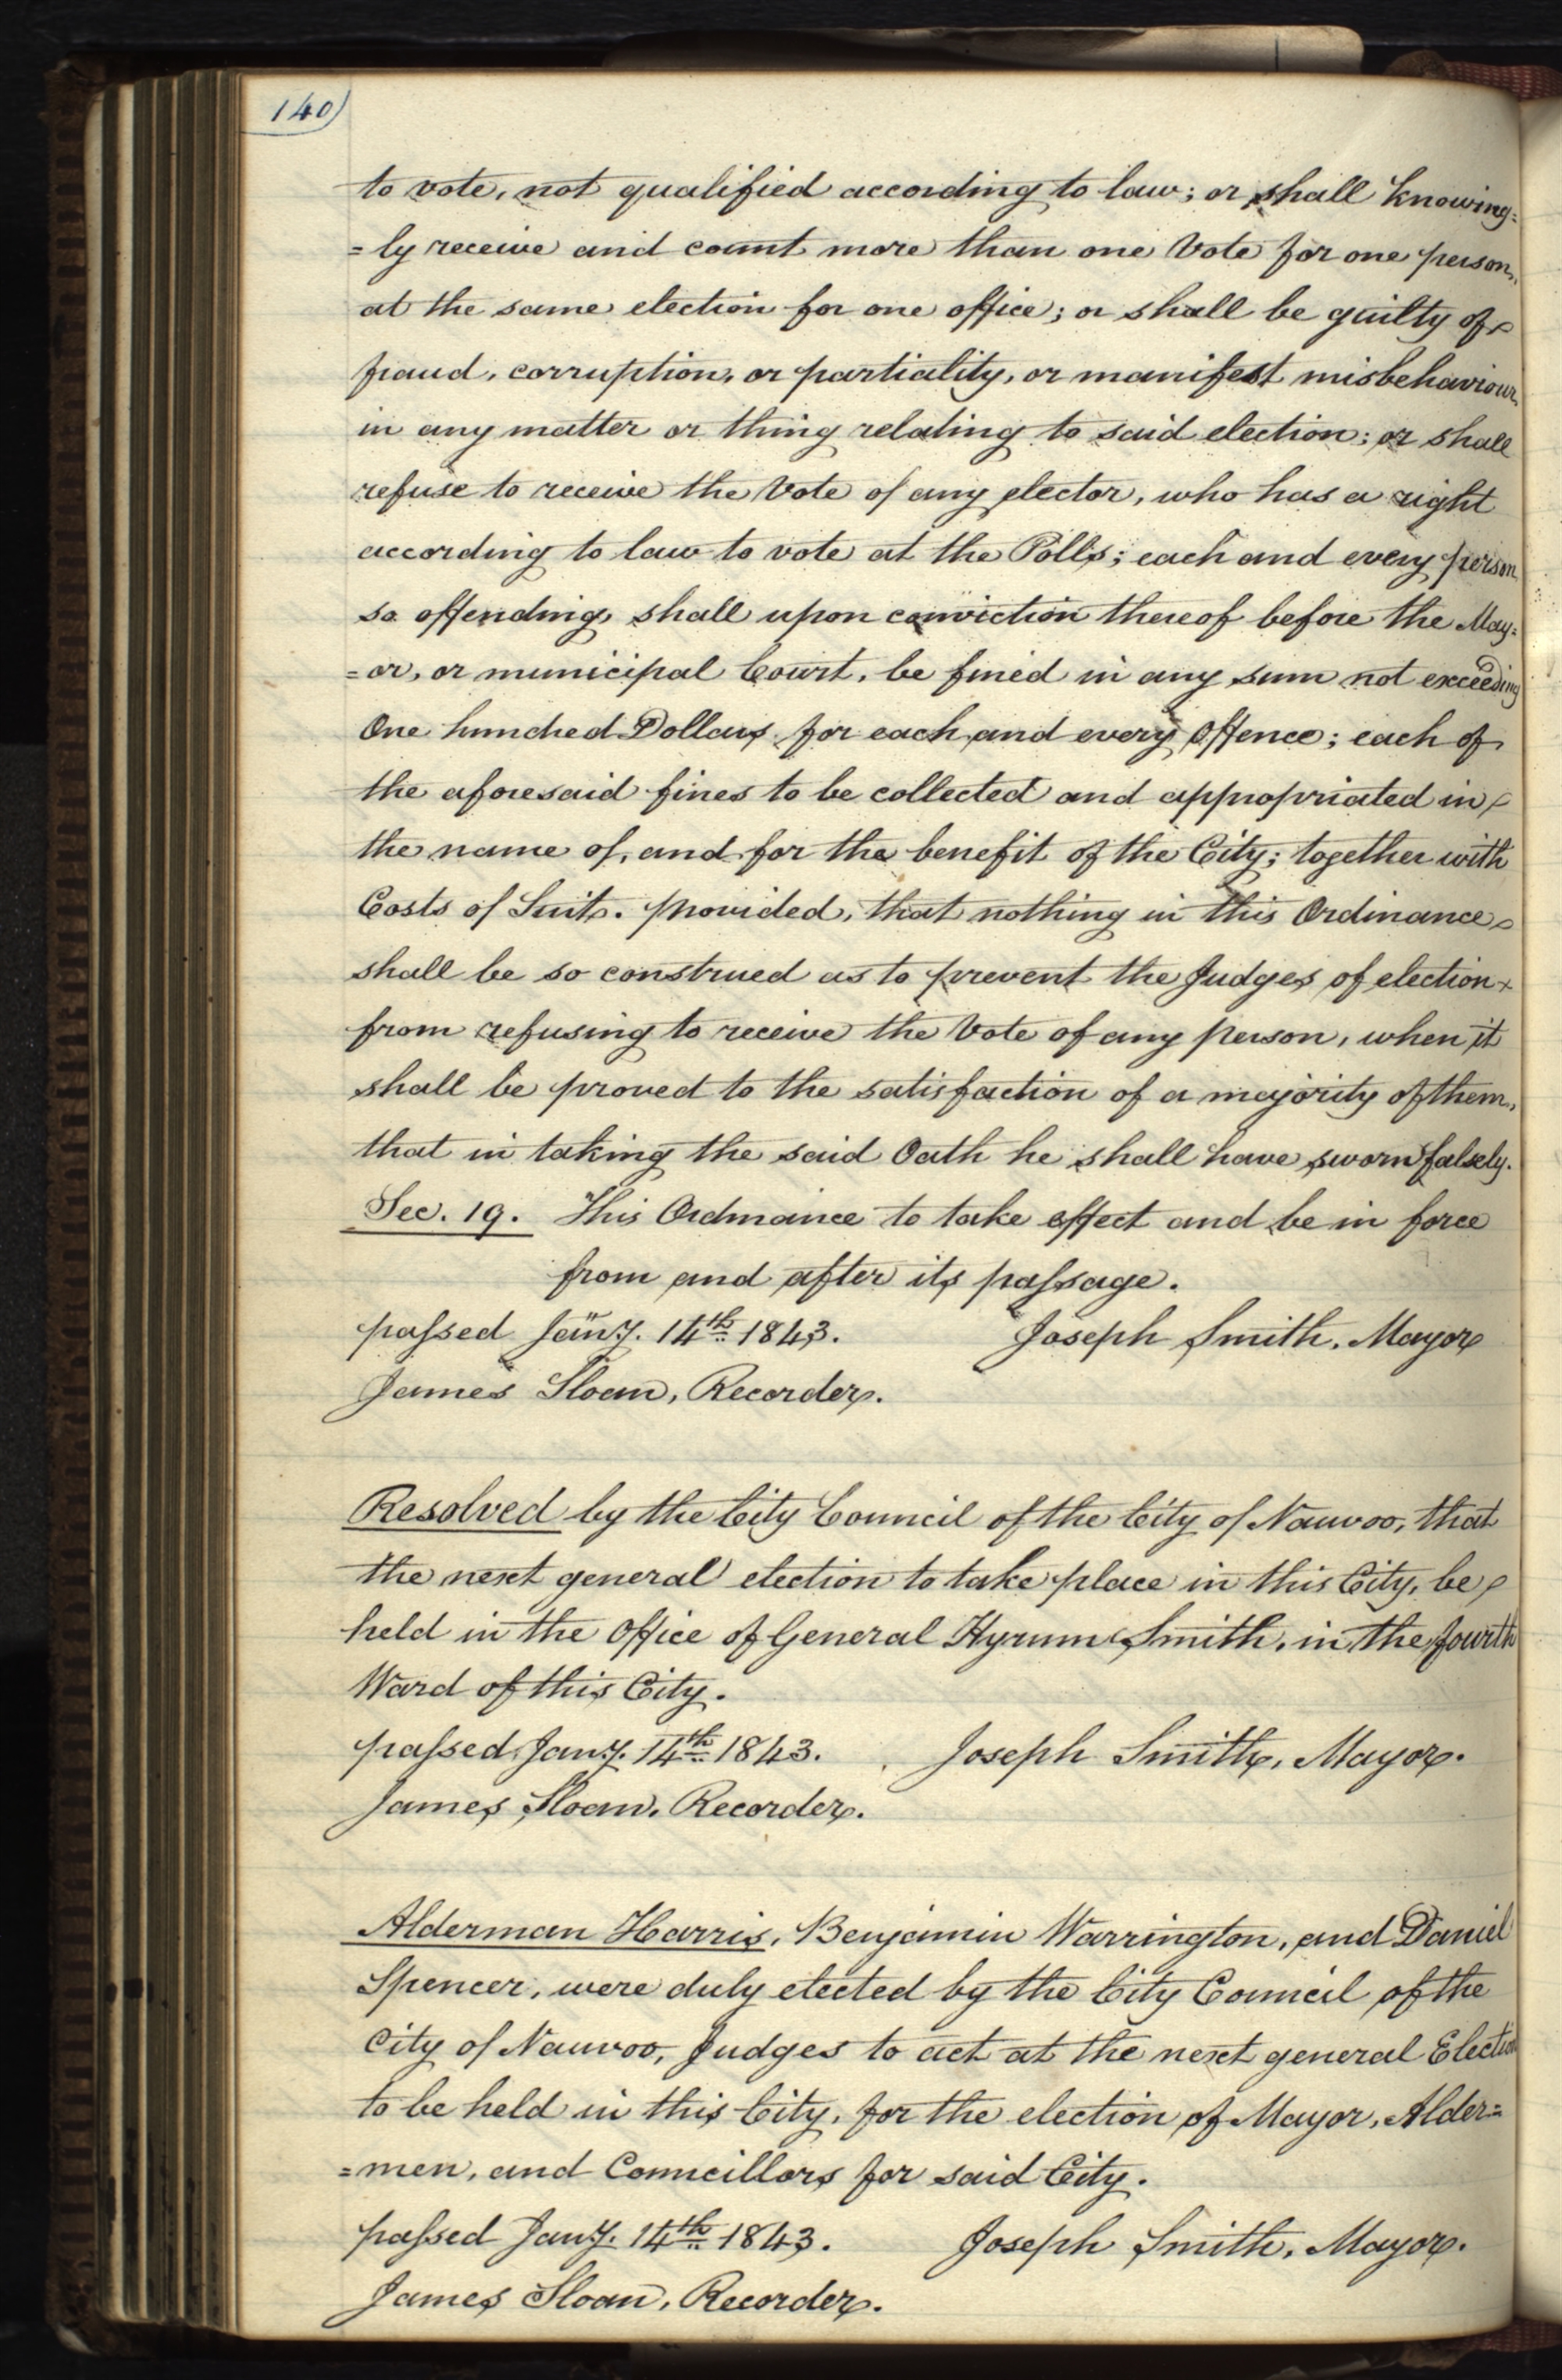 140)
to vote, not qualified according to law; or shall knowing=
=ly receive and count more than one Vote for one person,
at the same election for one office; or shall be guilty of
fraud, corruption, or partiality, or manifest misbehaviour,
in any matter or thing relating to said election; or shall
refuse to receive the Vote of any elector, who has a right
according to law to vote at the Polls; each and every person
so offending, shall upon conviction thereof before the May=
=or, or municipal Court, be fined in any sum not exceeding
One hundred Dollars for each and every Offence; each of
the aforesaid fines to be collected and appropriated in
the name of, and for the benefit of the City; together with
Costs of Suit. provided, that nothing in this Ordinance
shall be so construed as to prevent the Judges of election
from refusing to receive the Vote of any person, when it
shall be proved to the satisfaction of a majority of them,
that in taking the said Oath he shall have sworn falsely.
Sec. 19. This Ordinance to take effect and be in force
from and after its passage.
passed Jany. 14th 1843. Joseph Smith, Mayor
James Sloan, Recorder.
Resolved by the City Council of the City of Nauvoo, that
the next general election to take place in this City, be
held in the Office of General Hyrum Smith, in the fourth
Ward of this City.
passed Jany. 14th 1843. Joseph Smith, Mayor.
James Sloan, Recorder.
Alderman Harris, Benjamin Warrington, and Daniel
Spencer, were duly elected by the City Council of the
City of Nauvoo, Judges to act at the next general Election
to be held in this City, for the election of Mayor, Alder=
=men, and Councillors for said City.
passed Jany. 14th 1843. Joseph Smith, Mayor.
James Sloan, Recorder.